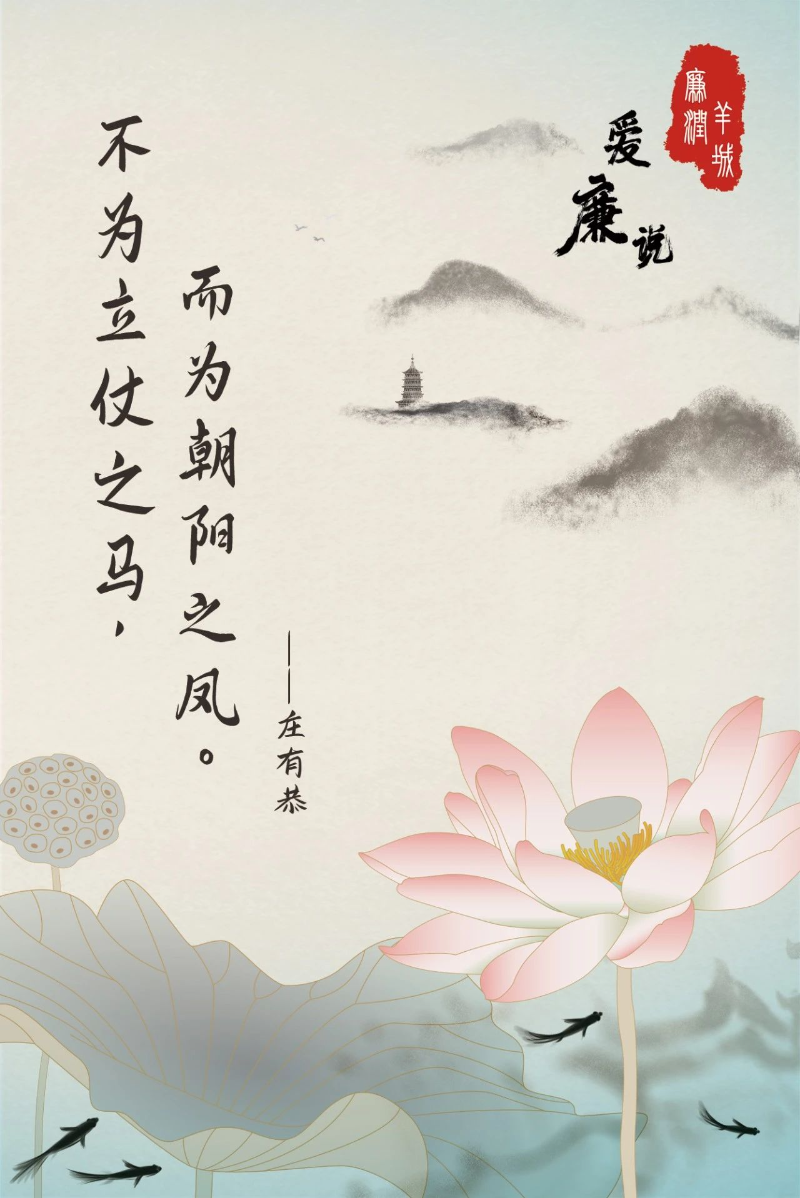 不为立仗之马，
而为朝阳之凤。
——庄有恭
爱廉说
廉潤
羊城